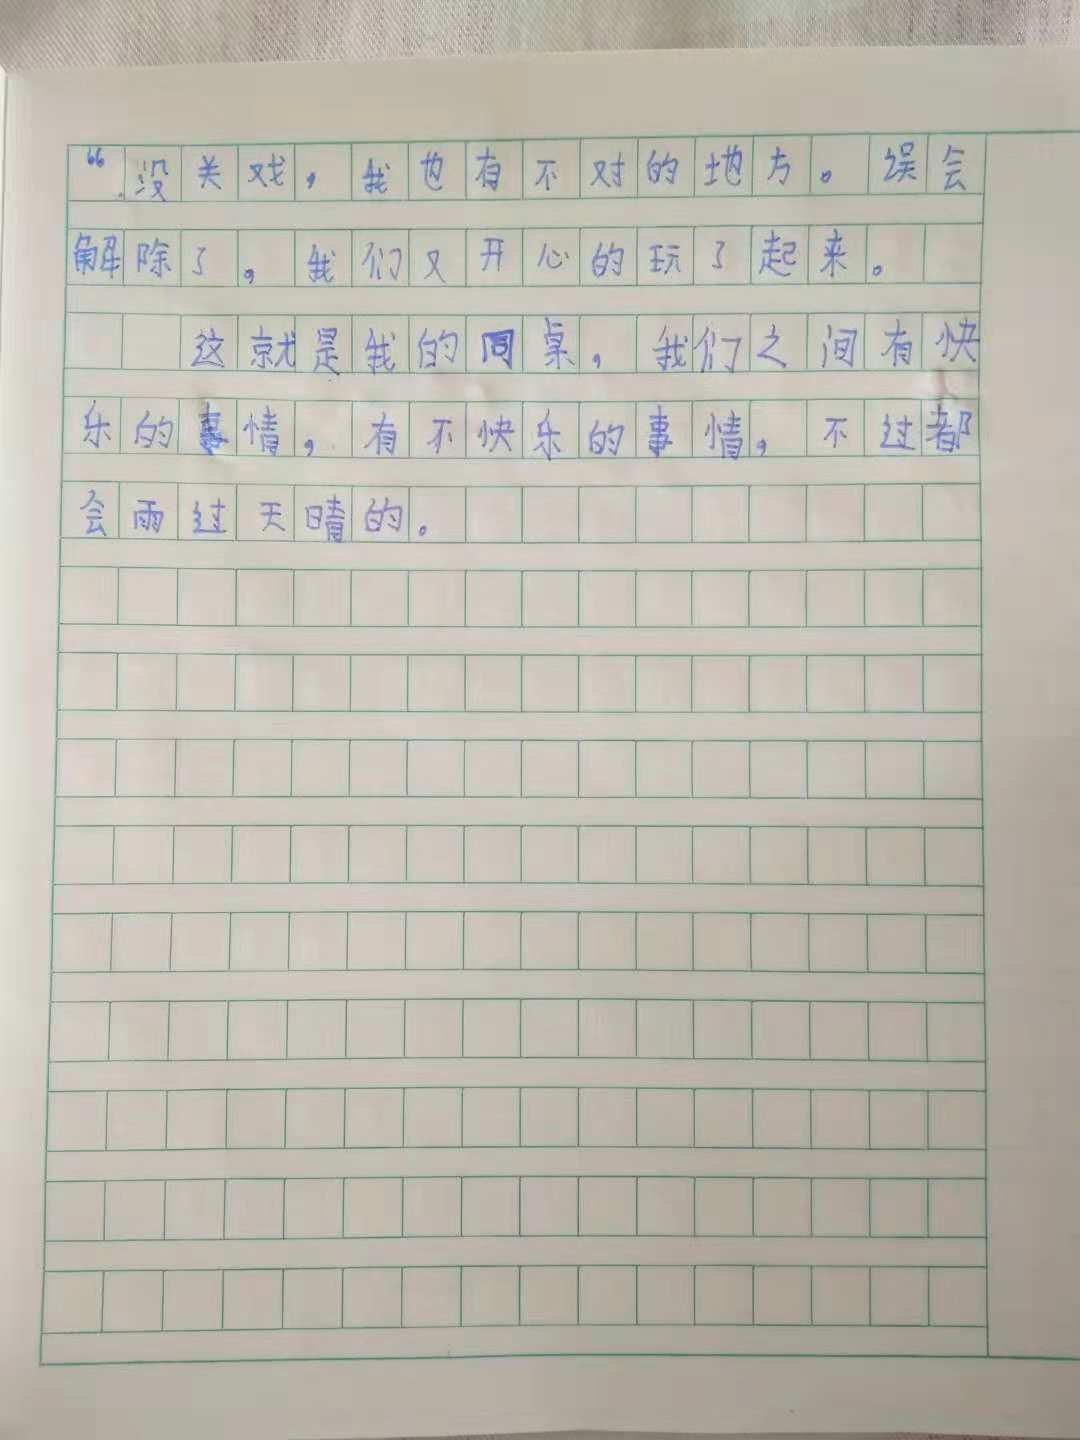 “没关戏，我也有不对的地方。误会
解除了，我们又开心的玩了起来。
这就是我的同桌，我们之间有快
乐的事情，有不快乐的事情，不过都
会雨过天晴的。